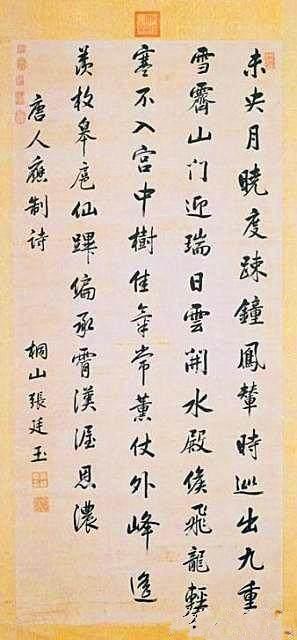 未央月曉度踈鐘鳳輦時巡出九重
雪霽山门迎瑞日雲開水殿候飛龍輕
寒不入宫中樹佳氣常薰仗外峰遥
羨枚皋扈仙蹕偏承霄漢渥恩濃
唐人應制詩
桐山張廷玉